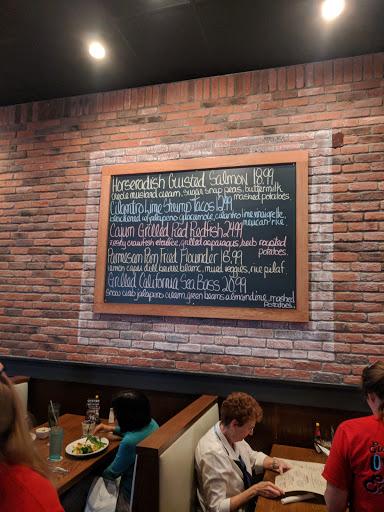 Horseradish Crusted Salmon 18.99
creole mustard cream, sugar snap peas, buttermilk
mashed potatoes
Cilantro Lime Shrimp Tacos 12.99
blackened w/ jalapeno guacamole, cilantro lime vinaigrette,
mexican rice
Cajun Grilled Red Redfish 24.99
zesty crawfish etouffee, grilled asparagus, herb roasted
potatoes.
Parmesan Pan Fried Flounder 18.99
lemon caper dill beurre blanc, mixed veggies, rice pilaf.
Grilled California Sea Bass 20.99
snow crab jalapeno cream, green beans almandine, mashed
potatoes.